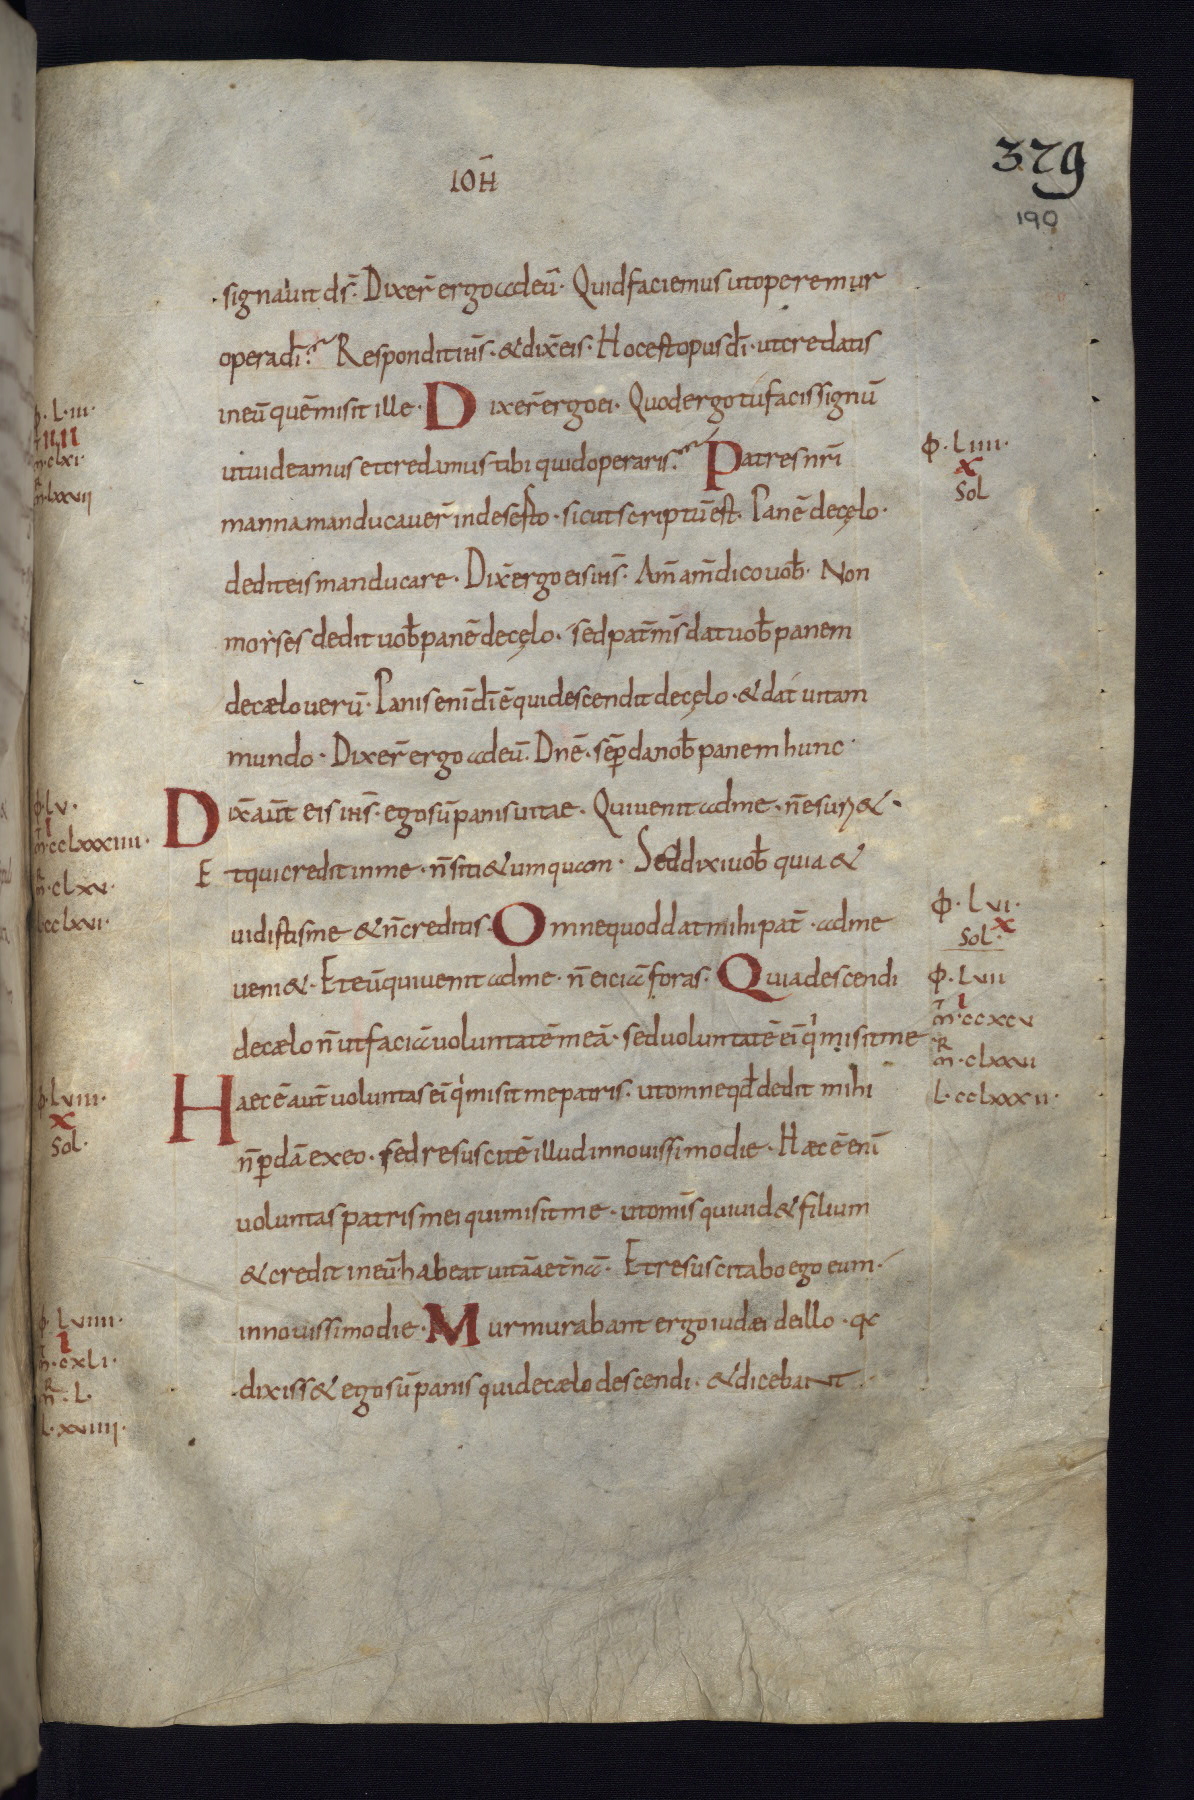 IOH̄
329
190
signauit dš. Dixer̄ ergo adeū. Quid faciemus ut operemur
opera dī? Respondit ihs̄. & dix̄ eis. Hoc est opus dī. ut credatis
in eū quē misit ille. Dixer̄ ergo ei. Quod ergo tu facis signū
ut uideamus et credamus tibi quid operaris? Patres nr̄i
manna manducauer̄ in deserto. sicut scriptū est. Panē de cęlo.
dedit eis manducare. Dix̄ ergo eis ihs̄. Am̄ am̄ dico uob̄. Non
moyses dedit uob̄ panē de cęlo. sed pat̄ ms̄ dat uob̄ panem
de caelo uerū. Panis enī dī ē qui descendit de cęlo. & dat uitam
mundo. Dixer̄ ergo adeū. Dnē. sēp da nob̄ panem hunc.
Dix̄ aūt eis ihs̄. ego sū panis uitae. Qui uenit adme. n̄ esuri&.
Et qui credit in me. n̄ siti& umquam. Sed dixi uob̄ quia &
uidistis me & n̄ creditis. Omne quod dat mihi pat̄. adme
ueni&. Et eū qui uenit adme. n̄ eiciā foras. Quia descendi
de caelo n̄ ut faciā uoluntatē meā. sed uoluntatē eī qi misit me
Haec ē aut̄ uoluntas eī qi misit me patris. ut omne qd̄ dedit mihi
n̄ pdā ex eo. sed resuscitē illud in nouissimo die. Haec ē enī
uoluntas patris mei qui misit me. ut omīs qui uid& filium
& credit in eū habeat uitā aet̄nā. Et resuscitabo ego eum.
in nouissimo die. Murmurabant ergo iudaei de illo. qa
dixiss& ego sū panis qui de caelo descendi. & dicebant
Φ. L. III.
IIII
m̄. clxi.
m̄. lxxvii
Φ. LIIII.
X
Sol
Φ. lv.
I
m̄. cclxxxiiii.
m̄. clxv.
l. cclxvi.
Φ. Lvi.
X
Sol.
Φ. Lvii
I
m̄. ccxcv
m̄. clxxii
L. cclxxxii.
Φ. Lviii.
X
Sol.
Φ. Lviiii.
I
m̄. cxli.
m̄. L.
L. xxiiii.